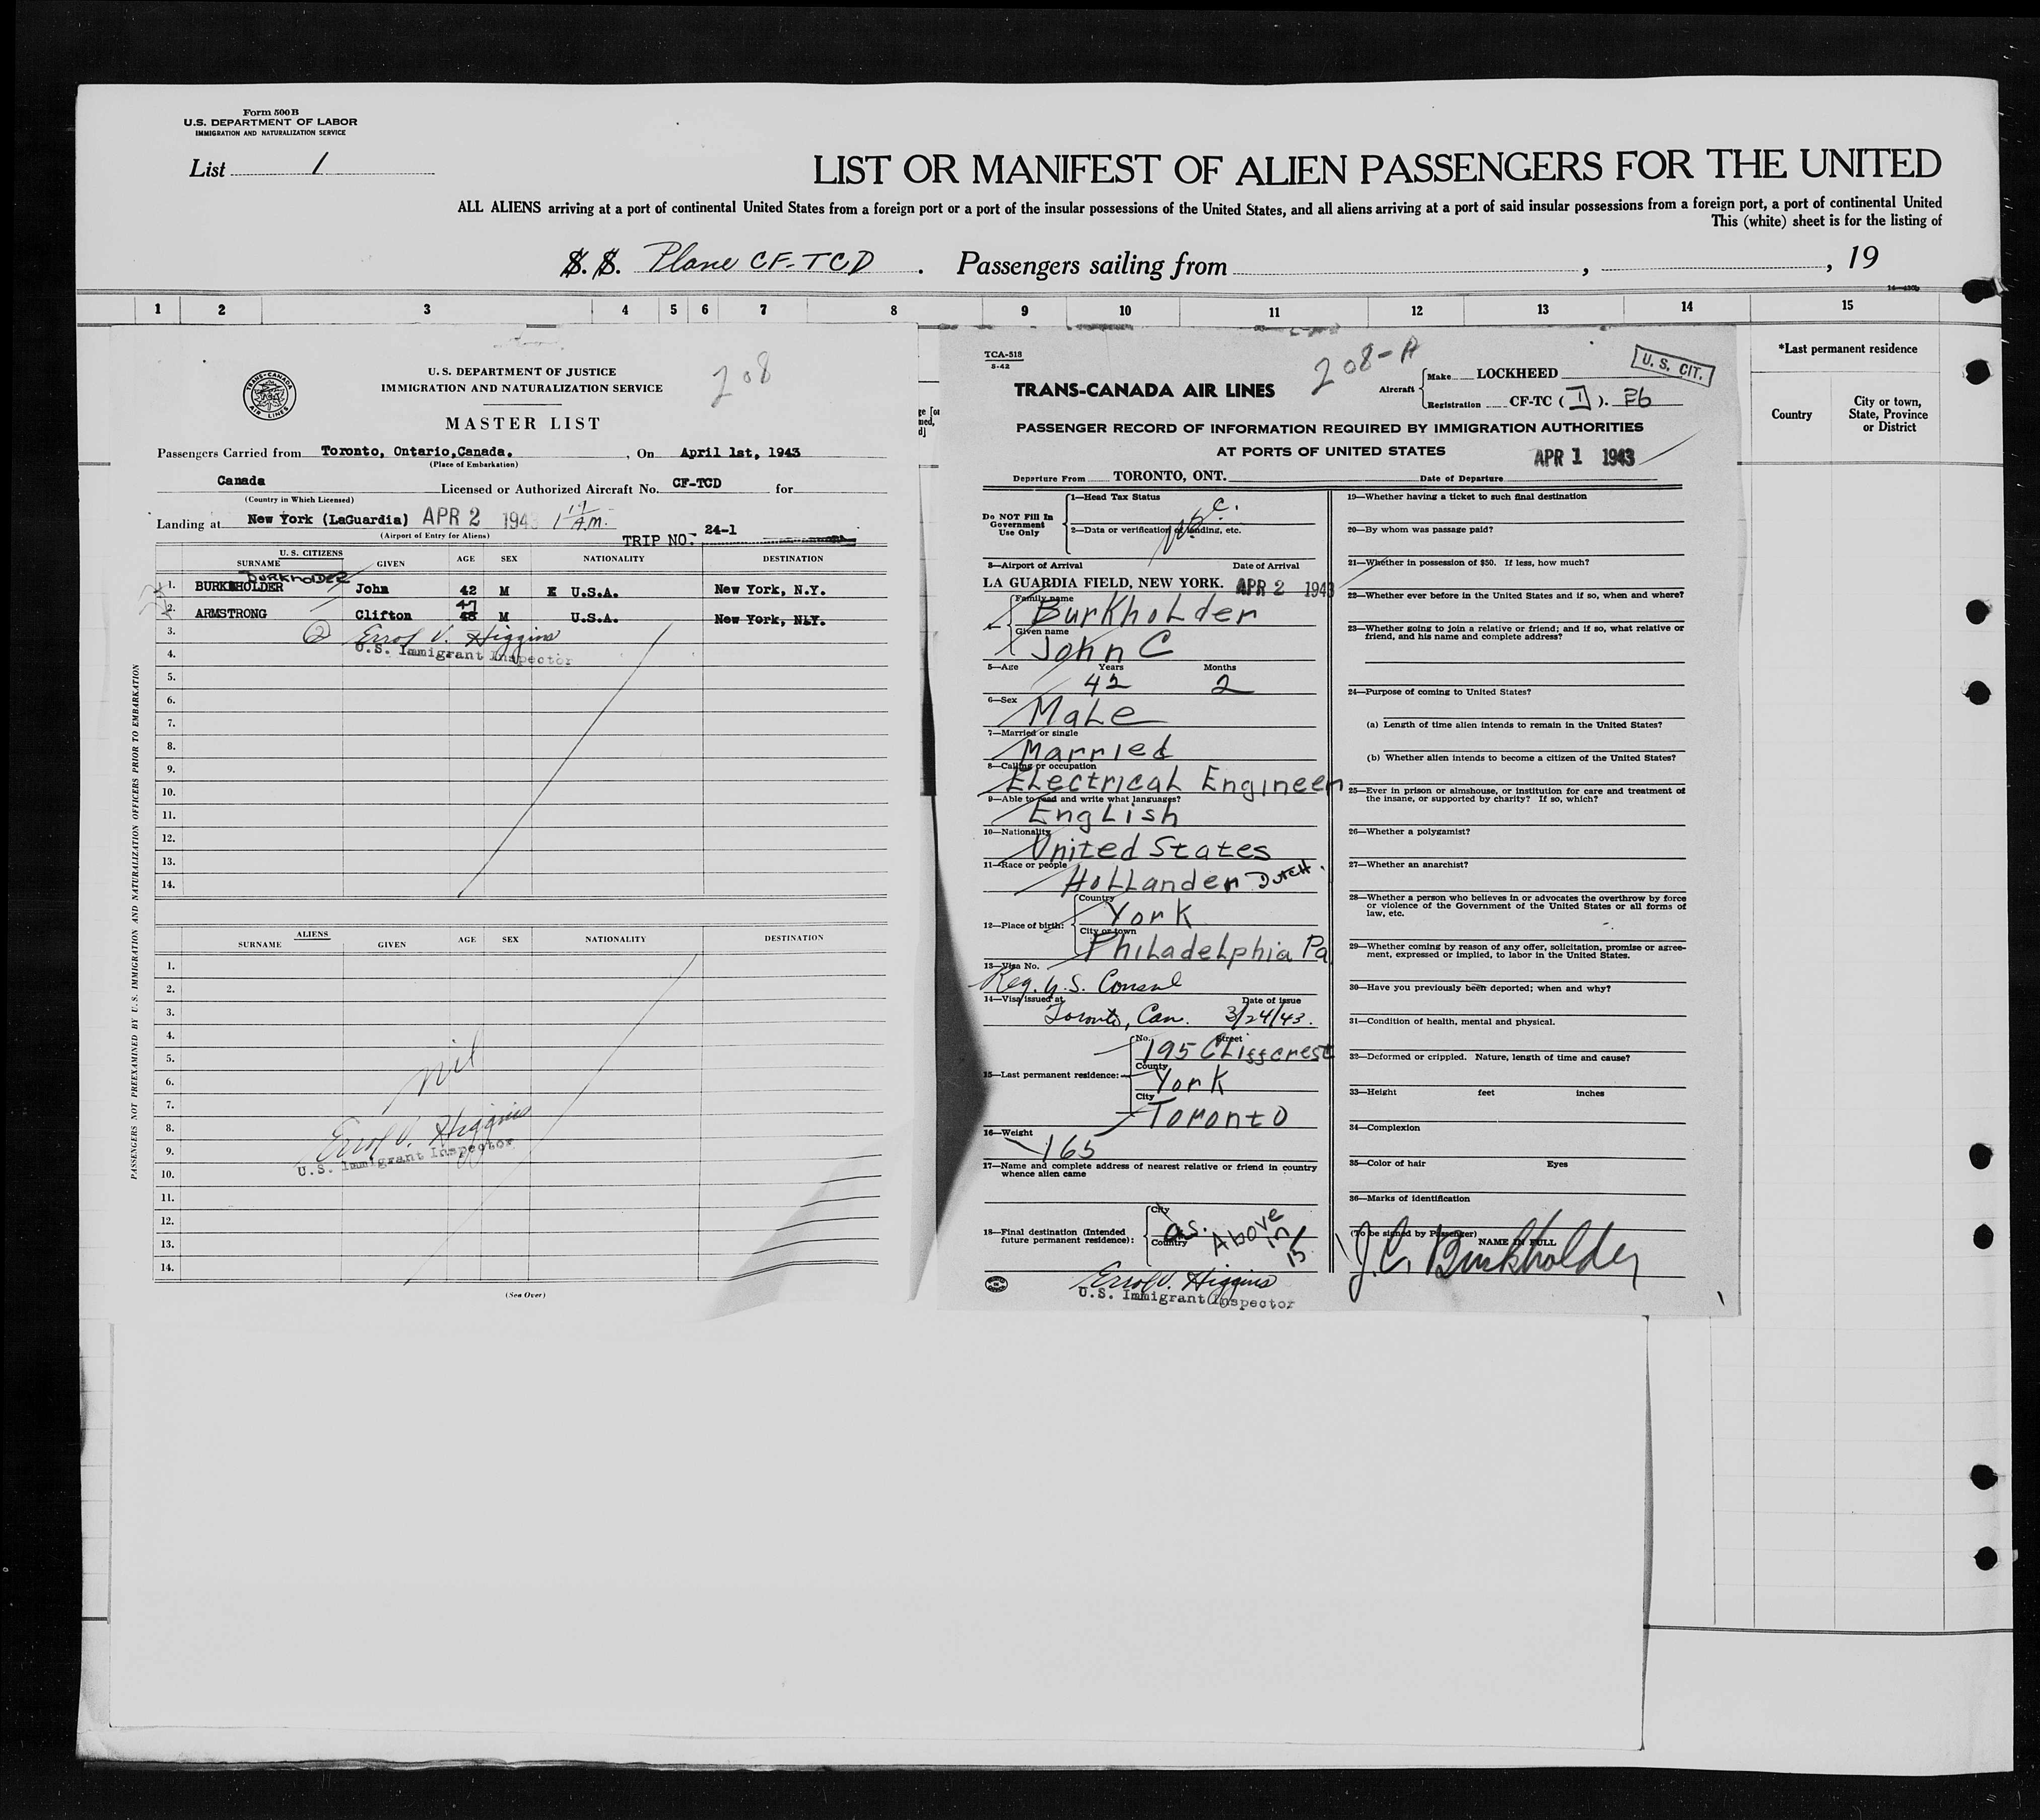 Form 500 B
U.S. DEPARTMENT OF LABOR
IMMIGRATION AND NATURALIZATION SERVICE
List 1
LIST OR MANIFEST OF ALIEN PASSENGERS FOR THE UNITED
ALL ALIENS arriving at a port of continental United States from a foreign port or a port of the insular possessions of the United States, and all aliens arriving at a port of said insular possessions from a foreign port, a port of continental United
This (white) sheet is for the listing of
S. S. Plane CF-TCD . Passengers sailing from , , 19
1 2 3 4 5 6 7 8 9 10 11 12 13 14 15
*Last permanent residence
Country
City or town, State, Province or District
TRANS-CANADA AIR LINES
U. S. DEPARTMENT OF JUSTICE
IMMIGRATION AND NATURALIZATION SERVICE
208
MASTER LIST
Passengers Carried from Toronto, Ontario, Canada. , On April 1st, 1943
(Place of Embarkation)
Canada Licensed or Authorized Aircraft No. CF-TCD for
(Country in Which Licensed)
Landing at New York (LaGuardia) APR 2 1943 1 17 A.M.
(Airport of Entry for Aliens)
TRIP NO. 24-1
U. S. CITIZENS
SURNAME GIVEN AGE SEX NATIONALITY DESTINATION
BURKHOLDER
1. BURKHOLDER John 42 M U.S.A. New York, N.Y.
47
2. ARMSTRONG Clifton 48 M U.S.A. New York, N.Y.
3. 2 Errol V. Higgins
U.S. Immigrant Inspector
4.
5.
6.
7.
8.
9.
10.
11.
12.
13.
14.
ALIENS
SURNAME GIVEN AGE SEX NATIONALITY DESTINATION
1.
2.
3.
4.
5. nil
6.
7.
8. Errol V. Higgins
9. U.S. Immigrant Inspector
10.
11.
12.
13.
14.
(See Over)
PASSENGERS NOT PREEXAMINED BY U. S. IMMIGRATION AND NATURALIZATION OFFICERS PRIOR TO EMBARKATION
TCA-518
8-42
208-A
U. S. CIT.
TRANS-CANADA AIR LINES
Aircraft Make LOCKHEED
Registration CF-TC ( D ).
PASSENGER RECORD OF INFORMATION REQUIRED BY IMMIGRATION AUTHORITIES
AT PORTS OF UNITED STATES
APR 1 1943
Departure From TORONTO, ONT. Date of Departure
Do NOT Fill In Government Use Only
1—Head Tax Status
2—Data or verification of landing, etc.
3—Airport of Arrival Date of Arrival
LA GUARDIA FIELD, NEW YORK. APR 2 1943
4— Family name
Burkholder
Given name
John C
5—Age Years Months
42 2
6—Sex
Male
7—Married or single
Married
8—Calling or occupation
Electrical Engineer
9—Able to read and write what languages?
English
10—Nationality
United States
11—Race or people
Hollander Dutch.
12—Place of birth:
Country
York
City or town
Philadelphia Pa
13—Visa No.
Reg. U.S. Consul
14—Visa issued at Date of issue
Toronto, Can. 3/24/43.
15—Last permanent residence:
No. Street
195 Cliffcrest
County
York
City
Toronto
16—Weight
165
17—Name and complete address of nearest relative or friend in country whence alien came
18—Final destination (Intended future permanent residence):
City
Country
as. Above in 15
Errol V. Higgins
U.S. Immigrant Inspector
19—Whether having a ticket to such final destination
20—By whom was passage paid?
21—Whether in possession of $50. If less, how much?
22—Whether ever before in the United States and if so, when and where?
23—Whether going to join a relative or friend; and if so, what relative or
friend, and his name and complete address?
24—Purpose of coming to United States?
(a) Length of time alien intends to remain in the United States?
(b) Whether alien intends to become a citizen of the United States?
25—Ever in prison or almshouse, or institution for care and treatment of
the insane, or supported by charity? If so, which?
26—Whether a polygamist?
27—Whether an anarchist?
28—Whether a person who believes in or advocates the overthrow by force
or violence of the Government of the United States or all forms of
law, etc.
29—Whether coming by reason of any offer, solicitation, promise or agree-
ment, expressed or implied, to labor in the United States.
30—Have you previously been deported; when and why?
31—Condition of health, mental and physical.
32—Deformed or crippled. Nature, length of time and cause?
33—Height feet inches
34—Complexion
35—Color of hair Eyes
36—Marks of identification
(To be signed by Passenger) NAME IN FULL
J. C. Burkholder